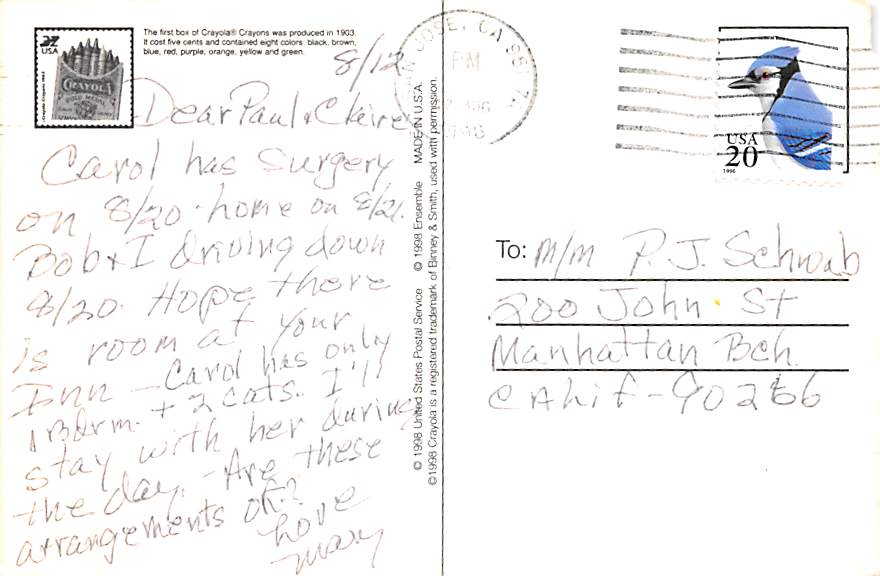 32
USA
CRAYOLA
GOLD MEDAL
The first box of Crayola® Crayons was produced in 1903.
It cost five cents and contained eight colors: black, brown,
blue, red, purple, orange, yellow and green.
8/12
Dear Paul & Claire
Carol has surgery
on 8/20 - home on 8/21.
Bob & I driving down
8/20. Hope there
is room at your
Inn - Carol has only
1 Bdrm. + 2 cats. I'll
stay with her during
the day. - Are these
arrangements OK?
Love
Mary
© 1998 United States Postal Service © 1998 Ensemble MADE IN U.S.A.
©1998 Crayola is a registered trademark of Binney & Smith, used with permission.
JOSE, CA 951
PM
AUG
1998
USA
20
1996
To: M/M P. J. Schwab
200 John St
Manhattan Bch.
CAlif - 90266